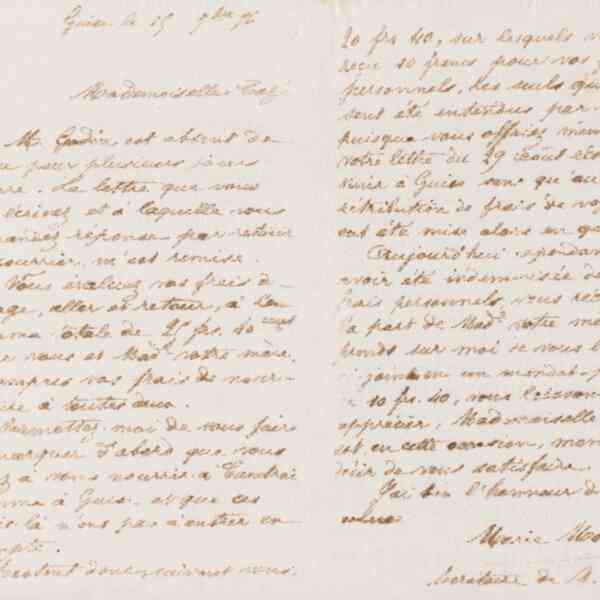 Guise le 25 9bre 76
Mademoiselle
M. Godin est absent de
pour plusieurs jours
. La lettre que vous
écrivez et à laquelle vous
réponse par retour
courrier, m'est remise.
Vous évaluez vos frais de
, aller et retour, à la
totale de 25 frs. 40
vous et Made votre mère,
compris vos frais de nourri-
à toutes deux.
Permettez-moi de vous faire
remarquer d'abord que vous
à vous nourrir à
à Guise et que ces
là n'ont pas à entrer en
.
donc, suivant vous,
20 frs 40, sur lesquels
reçu 10 francs pour vos
personnels, les seuls
été entendus par
puisque vous offriez
votre lettre du 29 août
venir à Guise sans qu'au
rétribution de frais de
ait été mise alors en
Aujourd'hui
avoir été indemnisée de
frais personnels, vous
la part de Made votre
prends sur moi de vous
en un mandat
10 frs. 40, vous laissant
apprécier, Mademoiselle
est en cette occasion, mon
désir de vous satisfaire.
J'ai bien l'honneur de
saluer
Marie
Secrétaire de M.